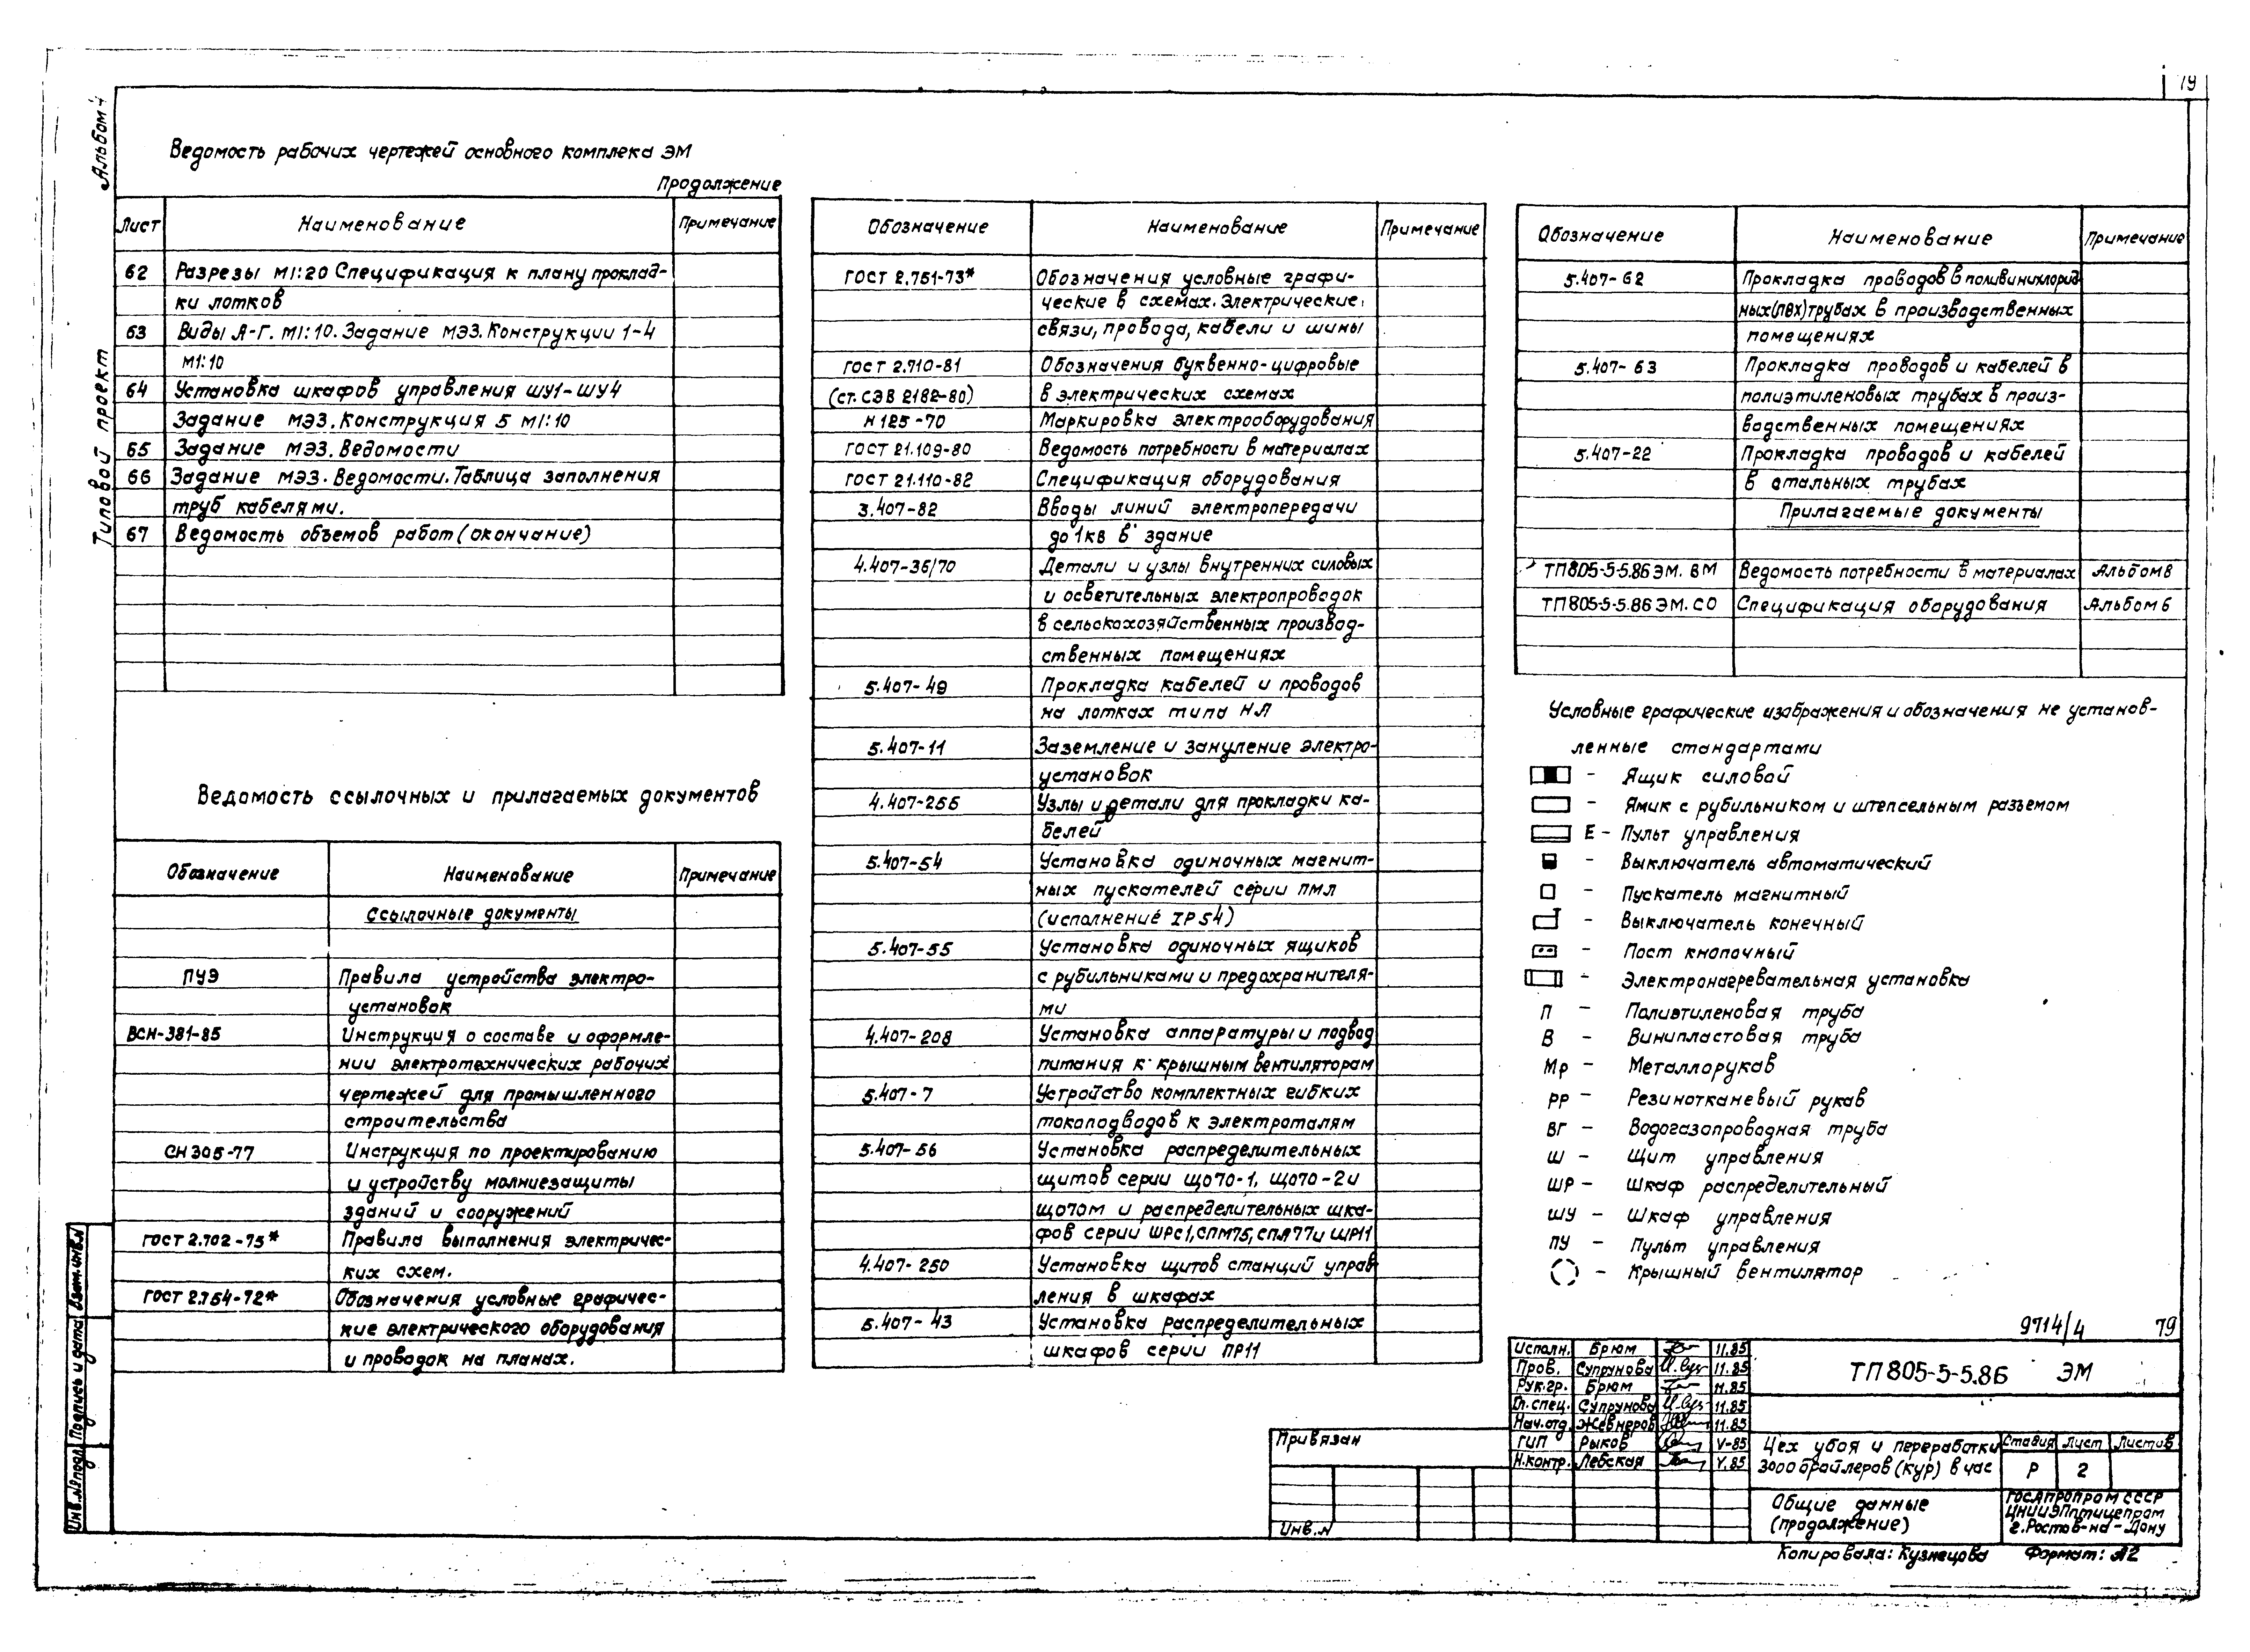 79
Альбом 4
Типовой проект
Ведомость рабочих чертежей основного комплека ЭМ
Продолжение
Лист Наименование Примечание
62 Разрезы М1:20 Спецификация к плану проклад-
ки лотков
63 Виды А-Г. М1:10. Задание МЭЗ. Конструкции 1-4
М1:10
64 Установка шкафов управления ШУ1-ШУ4
Задание МЭЗ. Конструкция 5 М1:10
65 Задание МЭЗ. Ведомости
66 Задание МЭЗ. Ведомости. Таблица заполнения
труб кабелями.
67 Ведомость объемов работ (окончание)
Ведомость ссылочных и прилагаемых документов
Обозначение Наименование Примечание
Ссылочные документы
ПУЭ Правила устройства электро-
установок
ВСН-381-85 Инструкция о составе и оформле-
нии электротехнических рабочих
чертежей для промышленного
строительства
СН 305-77 Инструкция по проектированию
и устройству молниезащиты
зданий и сооружений
ГОСТ 2.702-75* Правила выполнения электричес-
ких схем.
ГОСТ 2.754-72* Обозначения условные графичес-
кие электрического оборудования
и проводок на планах.
Обозначение Наименование Примечание
ГОСТ 2.751-73* Обозначения условные графи-
ческие в схемах. Электрические
связи, провода, кабели и шины
ГОСТ 2.710-81 Обозначения буквенно-цифровые
(ст. СЭВ 2182-80) в электрических схемах
Н 125-70 Маркировка электрооборудования
ГОСТ 21.109-80 Ведомость потребности в материалах
ГОСТ 21.110-82 Спецификация оборудования
3.407-82 Вводы линий электропередачи
до 1кв в здание
4.407-36/70 Детали и узлы внутренних силовых
и осветительных электропроводок
в сельскохозяйственных производ-
ственных помещениях
5.407-49 Прокладка кабелей и проводов
на лотках типа НЛ
5.407-11 Заземление и зануление электро-
установок
4.407-255 Узлы и детали для прокладки ка-
белей
5.407-54 Установка одиночных магнит-
ных пускателей серии ПМЛ
(исполнение IP54)
5.407-55 Установка одиночных ящиков
с рубильниками и предохранителя-
ми
4.407-208 Установка аппаратуры и подвод
питания к крышным вентиляторам
5.407-7 Устройство комплектных гибких
токоподводов к электроталям
5.407-56 Установка распределительных
щитов серии ЩО70-1, ЩО70-2 и
ЩО70М и распределительных шка-
фов серий ШРС1, СПМ75, СПА77 и ШР11
4.407-250 Установка щитов станций управ
ления в шкафах
5.407-43 Установка распределительных
шкафов серии ПР11
Обозначение Наименование Примечание
5.407-62 Прокладка проводов в поливинилхлорид
ных (ПВХ) трубах в производственных
помещениях
5.407-63 Прокладка проводов и кабелей в
полиэтиленовых трубах в произ-
водственных помещениях
5.407-22 Прокладка проводов и кабелей
в стальных трубах
Прилагаемые документы
ТП 805-5-5.86 ЭМ. ВМ Ведомость потребности в материалах Альбом 8
ТП 805-5-5.86 ЭМ. СО Спецификация оборудования Альбом 6
Условные графические изображения и обозначения не установ-
ленные стандартами
- Ящик силовой
- Ямик с рубильником и штепсельным разъемом
Е - Пульт управления
- Выключатель автоматический
- Пускатель магнитный
- Выключатель конечный
- Пост кнопочный
- Электронагревательная установка
П - Полиэтиленовая труба
В - Винипластовая труба
Мр - Металлорукав
РР - Резинотканевый рукав
ВГ - Водогазопроводная труба
Ш - Щит управления
ШР - Шкаф распределительный
ШУ - Шкаф управления
ПУ - Пульт управления
- Крышный вентилятор
9714/4 79
Исполн. Брюм 11.85
Пров. Супрунова 11.85
Рук.гр. Брюм 11.85
Гл.спец. Супрунова 11.85
Нач.отд. Жевнеров 11.85
ГИП Рыков V-85
Н.контр. Левская V.85
ТП 805-5-5.86 ЭМ
Цех убоя и переработки
3000 бройлеров (кур) в час
Стадия Лист Листов
Р 2
Общие данные
(продолжение)
ГОСАПРОПРОМ СССР
ЦНИИЭПптицепром
г. Ростов-на-Дону
Привязан
Инв.N
Копировала: Кузнецова Формат: А2
Инв.№подл. Подпись и дата Взам.инв.N